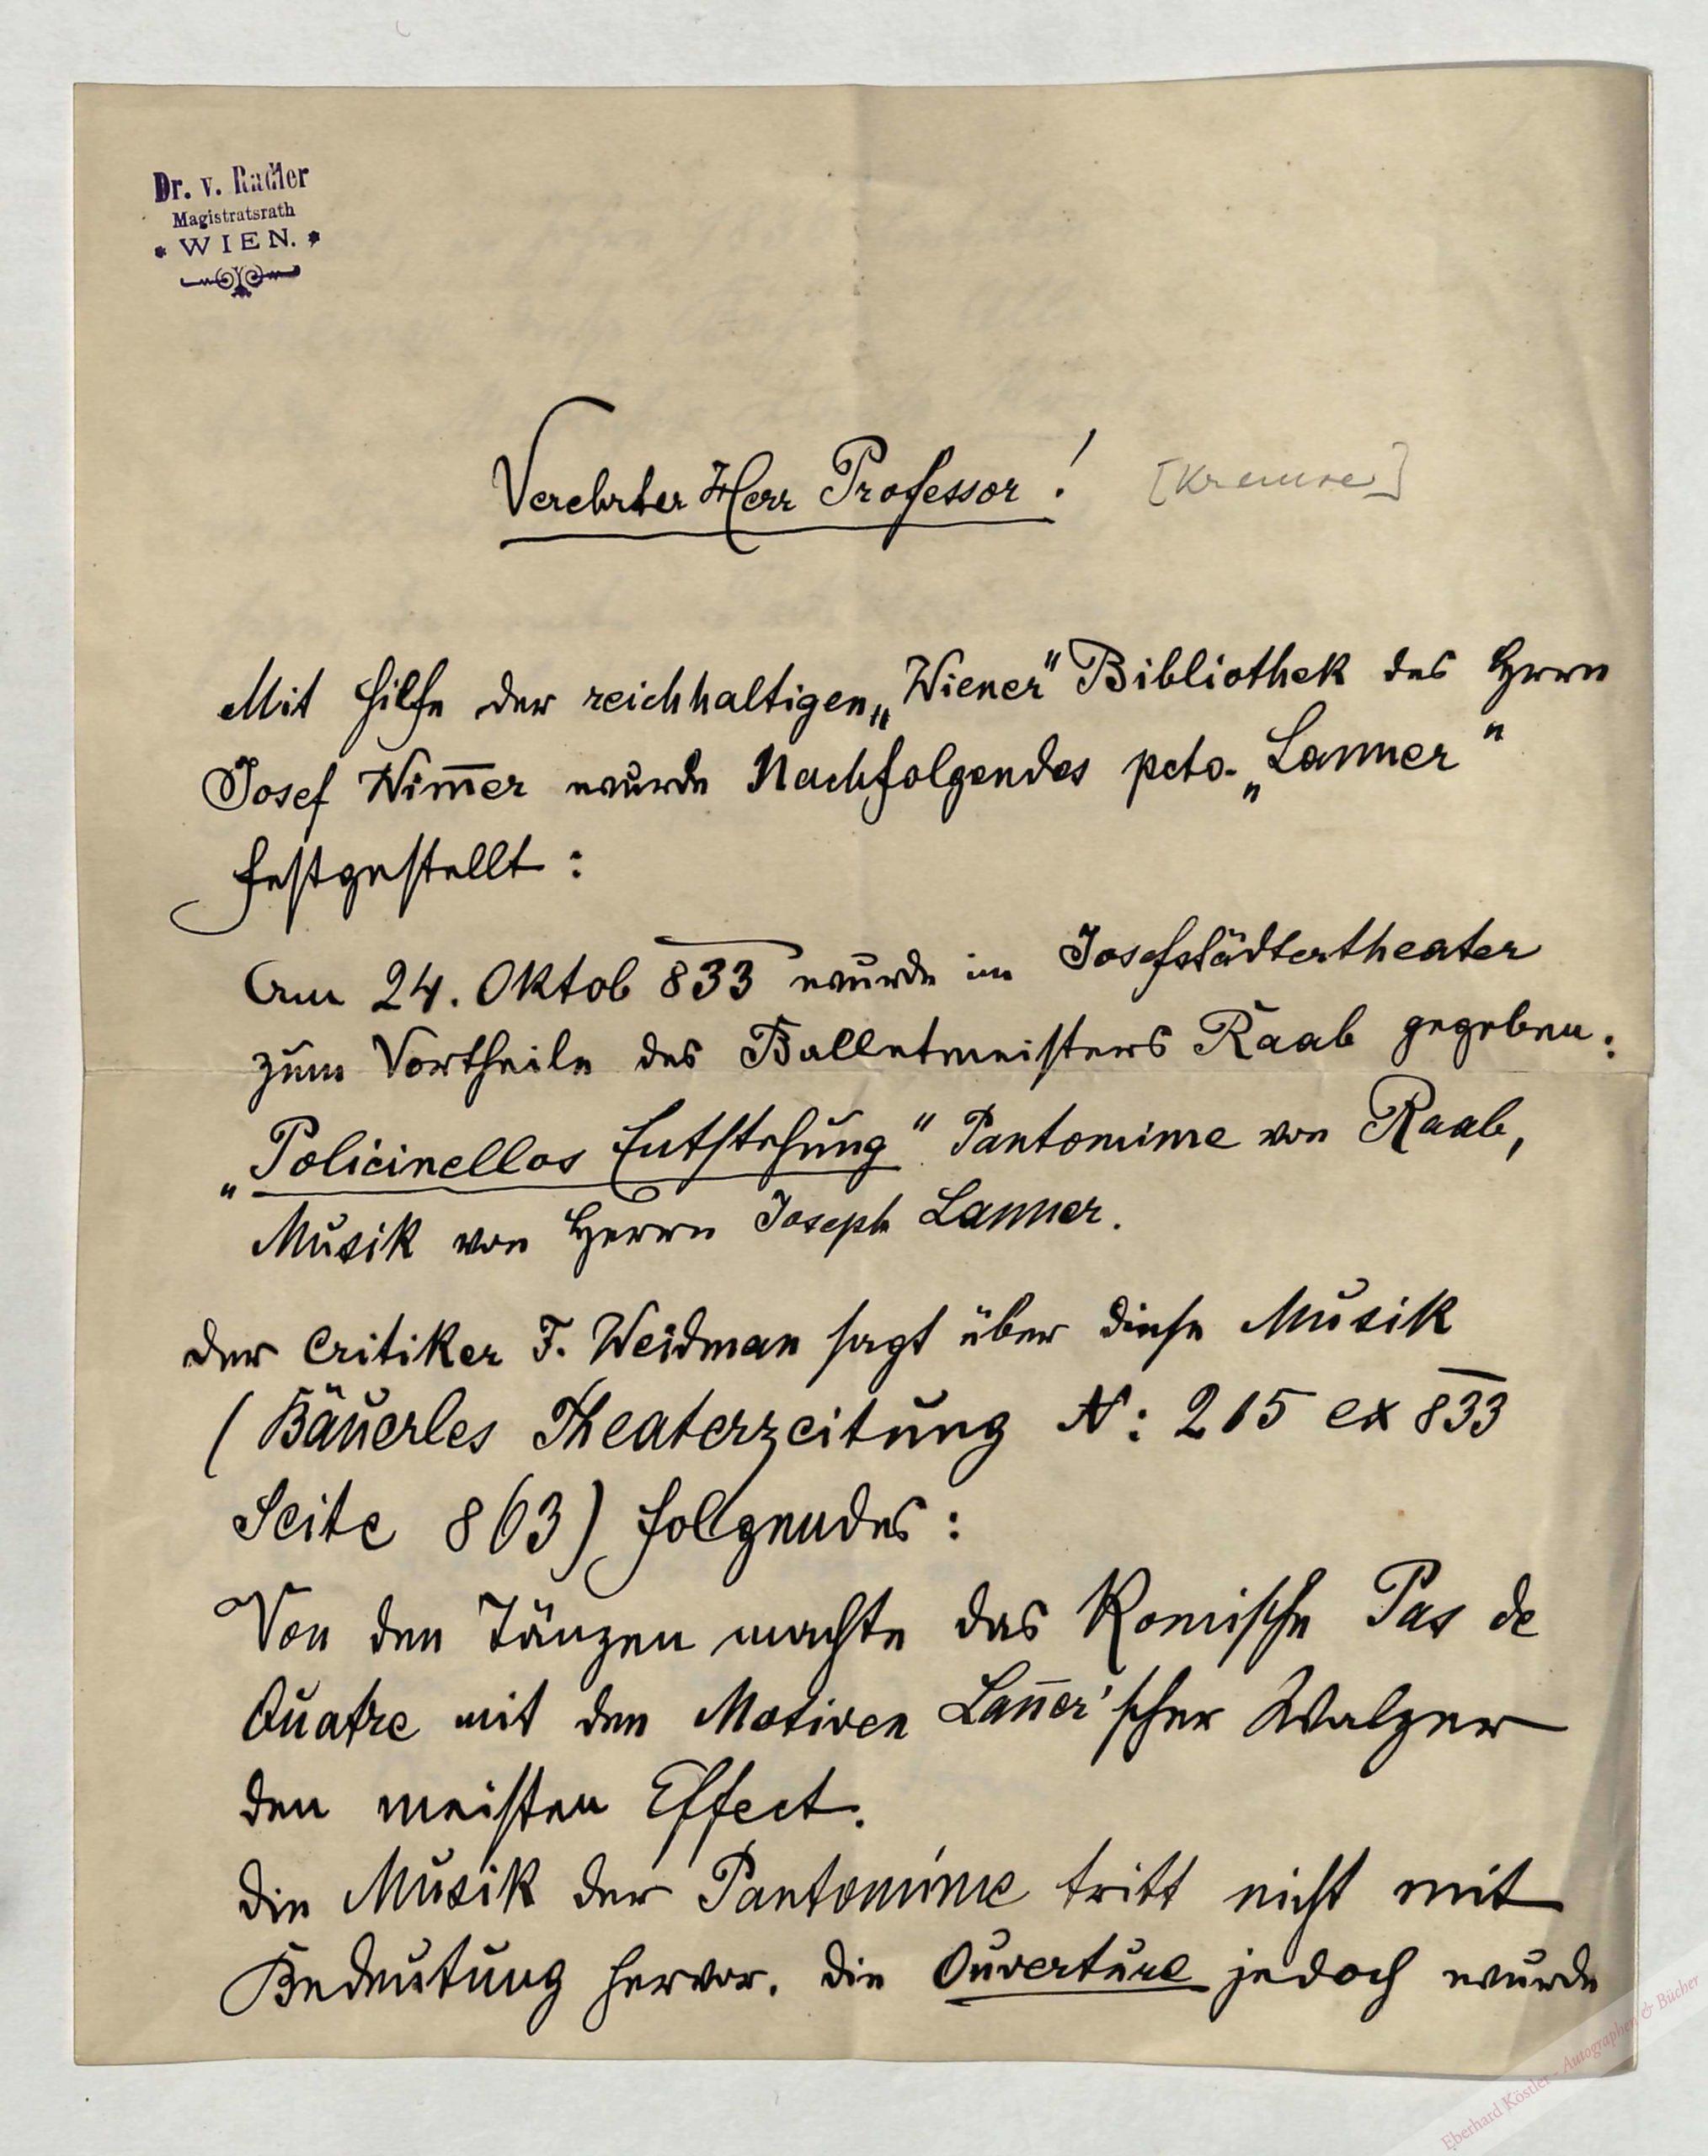 Dr. v. Radler
Magistratsrath
* WIEN. *
Verehrter Herr Professor!
Mit Hilfe der reichhaltigen „Wiener" Bibliothek des Herrn
Josef Wim̅er wurde Nachfolgendes pcto. „Lanner"
festgestellt:
Am 24. Oktob 833 wurde im Josefstädtertheater
zum Vortheile des Balletmeisters Raab gegeben:
„Policinellos Entstehung" Pantomime von Raab,
Musik von Herrn Joseph Lanner.
Der Critiker F. Weidman sagt über diese Musik
(Bäuerles Theaterzeitung N: 215 ex 833
Seite 863) folgendes:
Von den Tänzen machte das Komische Pas de
Quatre mit den Motiven Lan̅er'scher Walzer
den meisten Effect.
Die Musik der Pantomime tritt nicht mit
Bedeutung hervor. Die Ouverture jedoch wurde
Eberhard Köstler - Autographen & Bücher